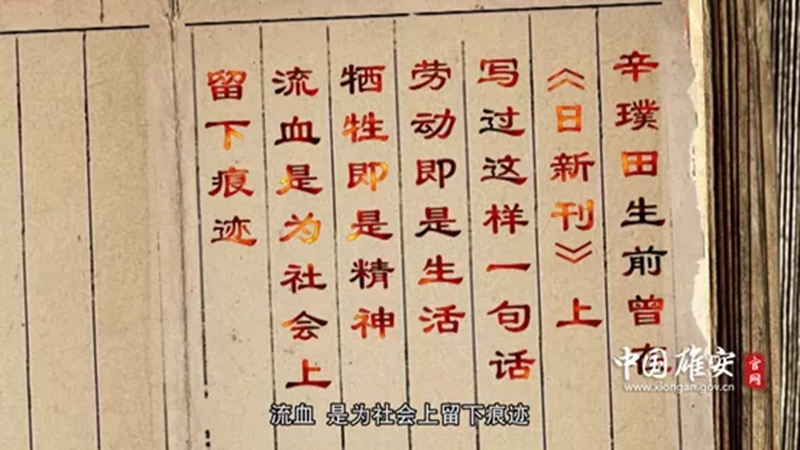 辛璞田生前曾在
《日新刊》上
写过这样一句话
劳动即是生活
牺牲即是精神
流血是为社会上
留下痕迹
中国雄安 官网
www.xiongan.gov.cn
流血 是为社会上留下痕迹